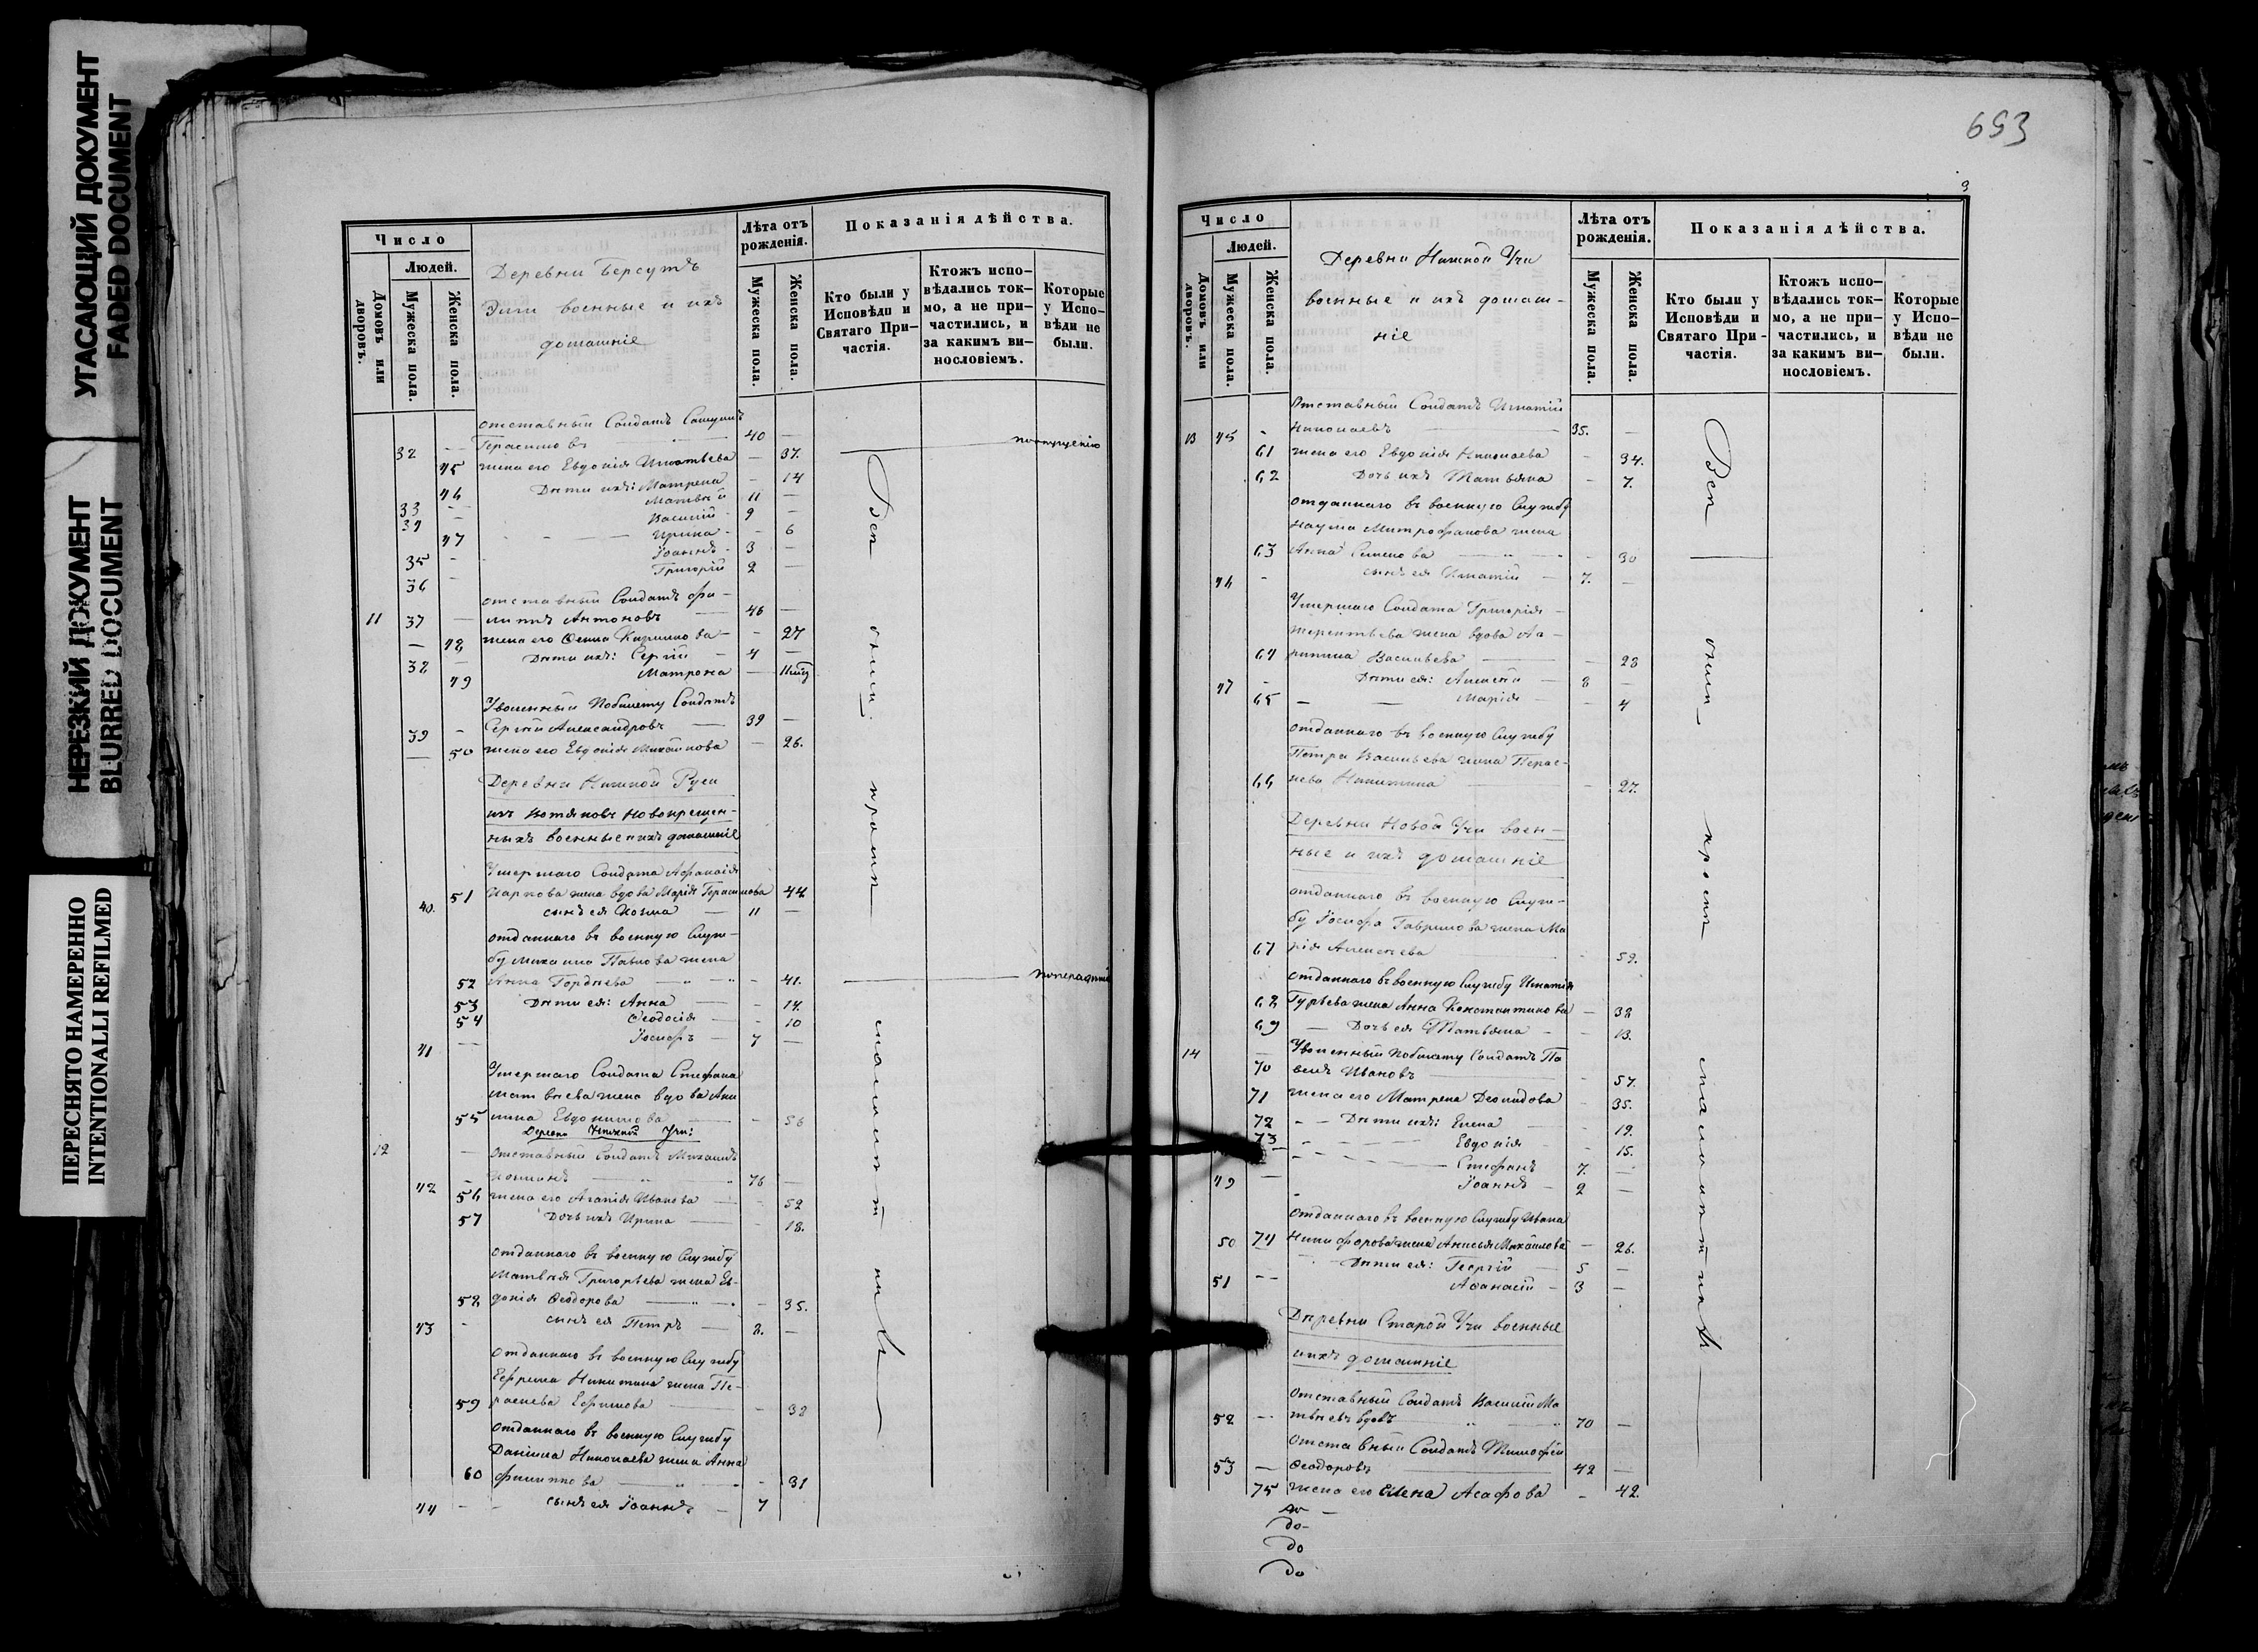 УГАСАЮЩИЙ ДОКУМЕНТ
FADED DOCUMENT
НЕРЕЗКИЙ ДОКУМЕНТ
BLURRED DOCUMENT
ПЕРЕСНЯТО НАМЕРЕННО
INTENTIONALLI REFILMED
Число
Людей.
Домовъ или дворовъ.
Мужеска пола.
Женска пола.
Деревни Берсутъ
военные и ихъ
домашніе
Лѣта отъ рожденія.
Мужеска пола.
Женска пола.
Показанія дѣйства.
Кто были у Исповѣди и Святаго Причастія.
Ктожъ исповѣдались токмо, а не причастились, и за какимъ винословіемъ.
Которые у Исповѣди не были.
отставный Солдатъ
32 — Герасимовъ 40 —
45 жена его Евдокія Игнатьева — 37.
46 Дѣти ихъ: Матрена — 14
33 — Матвѣй 11 —
34 — Василій 9 —
47 Ирина — 6
35 — Іоаннъ 3 —
36 — Григорій 2 —
отставный Солдатъ Фи-
11 37 — липпъ Антоновъ 46 —
— 48 жена его Ѳекла Кирилова — 27
38 — Дѣти ихъ: Сергій 4 —
49 Матрона —
Уволенный побилету Солдатъ
39 — Сергій Александровъ 39 —
50 жена его Евдокія Михайлова — 26.
Деревни Нижной Руси
изъ Вотяковъ Новокрещен-
ныхъ военные и ихъ домашніе
Умершаго Солдата Афанасія
51 Маркова жена вдова Марія Герасимова 44
40. сынъ ея Козма 11 —
отданнаго въ военную Служ-
бу Михаила Павлова жена
52 Анна Гордѣева — 41.
53 Дѣти ея: Анна — 14.
54 Ѳеодосія — 10
41 — Іосифъ 7 —
Умершаго Солдата Стефана
Матвѣева жена вдова Аки
55 лина Евдокимова — 56
Деревни Нижней Учи:
12 — Отставный Солдатъ Михаилъ
42 — 76 —
56 жена его Агапія Иванова — 52
57 Дочь ихъ Ирина — 18.
отданнаго въ военную Службу
Матвѣя Григорьева жена Ев-
58 докія Ѳеодорова — 35.
43 — сынъ ея Петръ 8. —
Отданнаго въ военную Службу
Ефрема Никитина жена Пе-
59 раскева Ефимова — 38
отданнаго въ военную Службу
Даніила Николаева жена Анна
60 Филиппова — 31
44 — сынъ ея Іоаннъ 7
Всѣ были кромѣ малолѣтныхъ
693
3
Число
Людей.
Домовъ или дворовъ.
Мужеска пола.
Женска пола.
Деревни Нижной Учи
военные и ихъ домаш-
ніе
Лѣта отъ рожденія.
Мужеска пола.
Женска пола.
Показанія дѣйства.
Кто были у Исповѣди и Святаго Причастія.
Ктожъ исповѣдались токмо, а не причастились, и за какимъ винословіемъ.
Которые у Исповѣди не были.
Отставный Солдатъ Игнатій
13 45 — Николаевъ 35. —
61 жена его Евдокія Николаева — 34.
62 Дочь ихъ Татьяна — 7.
отданнаго въ военную Службу
Наума Митрофанова жена
63 Анна Семенова — 30
46 — сынъ ея Игнатій 7. —
Умершаго Солдата Григорія
Терентьева жена вдова Аг-
64 рипина Васильева — 28
47 — Дѣти ея: Алексѣй 8 —
65 Марія — 4
отданнаго въ военную Службу
Петра Васильева жена Парас-
66 кева Никитина — 27.
Деревни Новой Учи воен-
ные и ихъ домашніе
отданнаго въ военную Служ-
бу Іосифа Гаврилова жена Ма
67 рія Алексѣева — 59.
отданнаго въ военную Службу Игнатія
68 Гурьева жена Анна Константинова — 38
69 — Дочь ея Татьяна — 13.
14 — Уволенный побилету Солдатъ Па
70 велъ Ивановъ — 57.
71 жена его Матрена Леонидова — 35.
72 — Дѣти ихъ: Елена — 19.
73 Евдокія — 15.
Стефанъ 7. —
49 — Іоаннъ 2 —
отданнаго въ военную Службу Ивана
50 74 Никифорова жена Анисья Михайлова — 26.
Дѣти ея: Георгій 5 —
51 — Аѳанасій 3 —
Деревни Старой Учи военные
ихъ домашніе
Отставный Солдатъ Василій Ма
52 — твѣевъ вдовъ 70 —
Отставный Солдатъ Тимофей
53 — Ѳеодоровъ 42 —
75 жена его Елена Асафова — 42.
Всѣ были кромѣ малолѣтныхъ
до
до
до